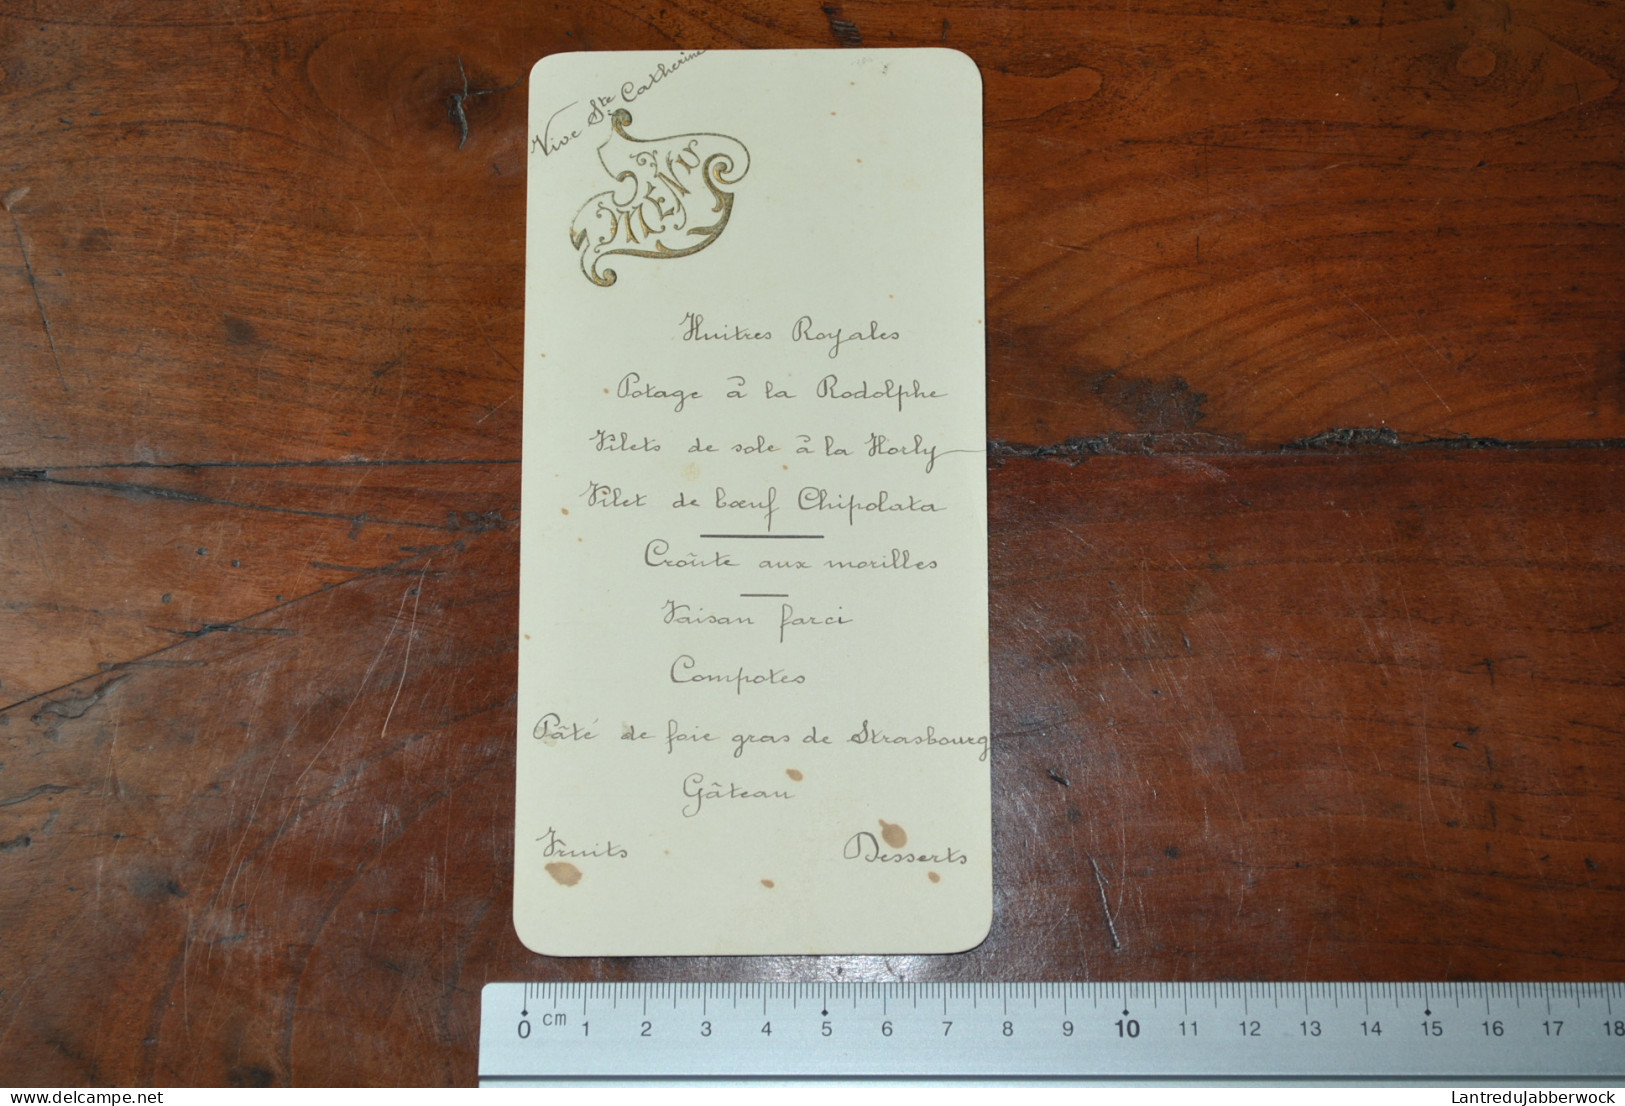 Vive Ste Catherine
MENU
Huitres Royales
Potage à la Rodolphe
Filets de sole à la Horly
Filet de bœuf Chipolata
Croûte aux morilles
Faisan farci
Compotes
Pâté de foie gras de Strasbourg
Gâteau
Fruits Desserts
0 cm 1 2 3 4 5 6 7 8 9 10 11 12 13 14 15 16 17 18
delcampe.net
LantreduJabberwock